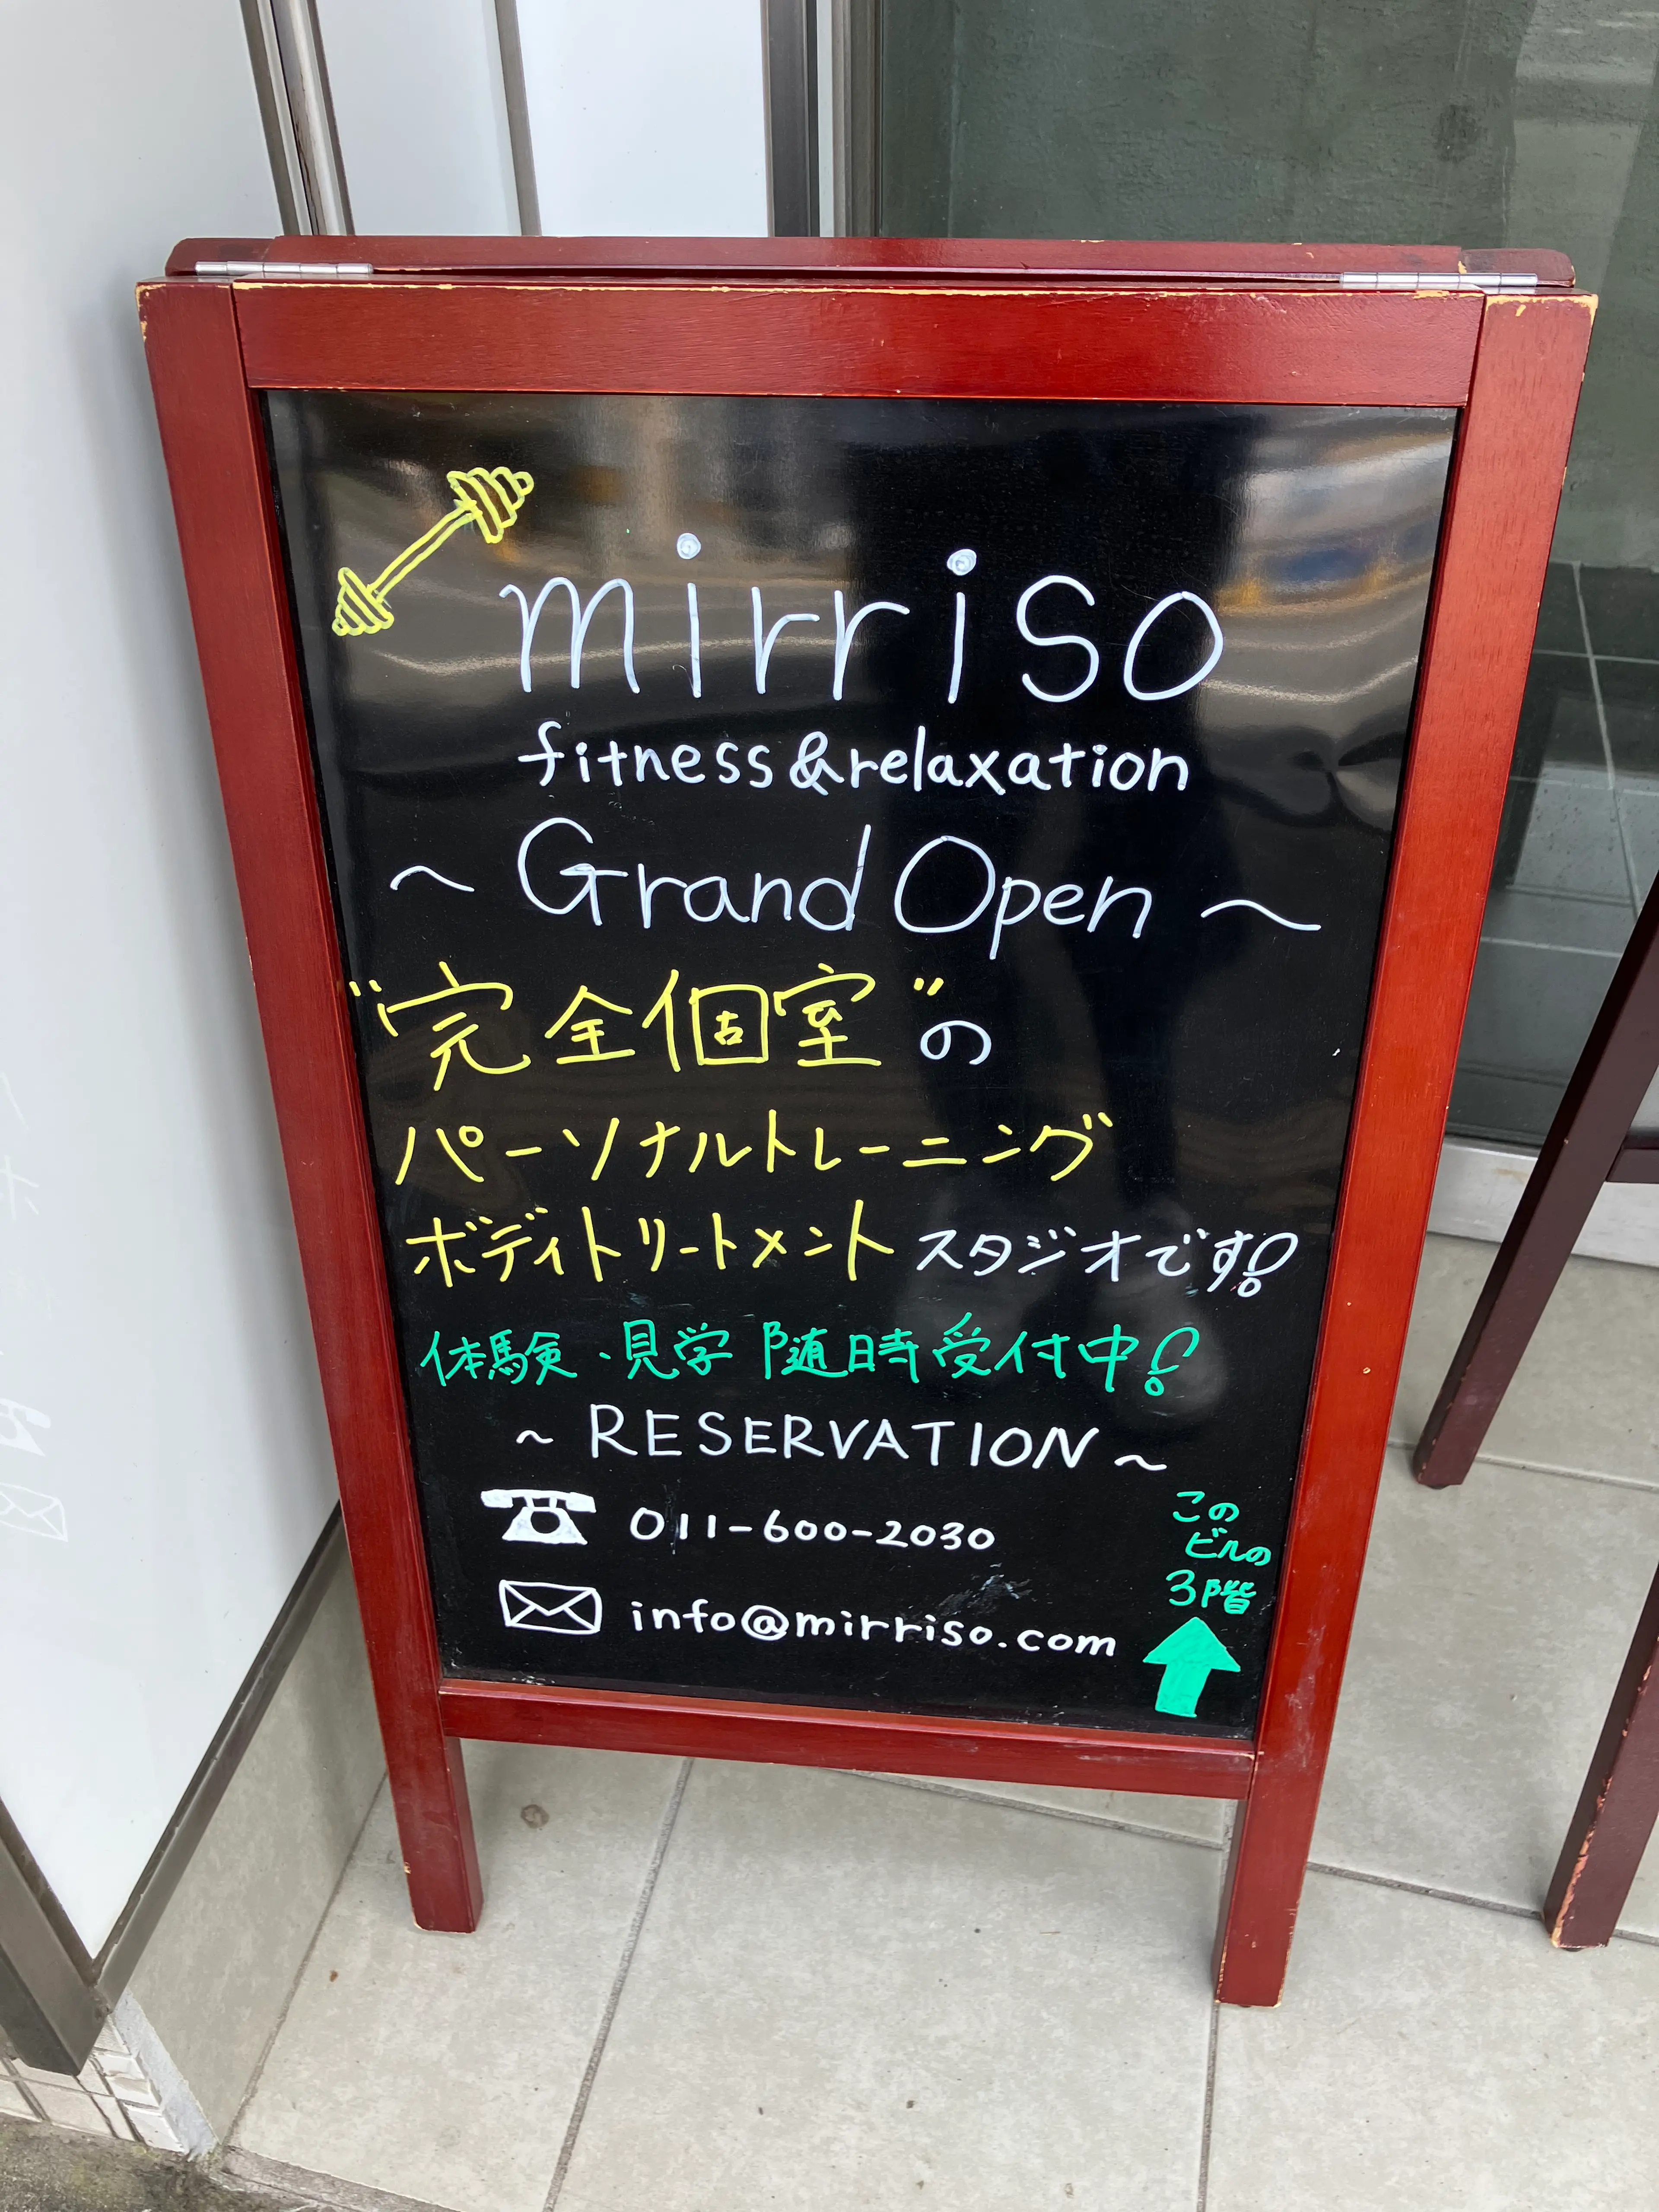 mirriso
fitness&relaxation
〜 Grand Open 〜
"完全個室"の
パーソナルトレーニング
ボディトリートメント スタジオです!
体験・見学 随時受付中!
~ RESERVATION ~
011-600-2030
info@mirriso.com
この
ビルの
3階